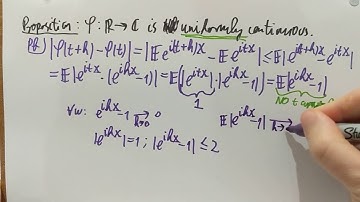 Proposition: φ: ℝ → ℂ is uniformly continuous.
Pf) |φ(t+h) - φ(t)| = |𝔼 e^{i(t+h)X} - 𝔼 e^{itX}| ≤ 𝔼|e^{i(t+h)X} - e^{itX}|
= 𝔼|e^{itX}·(e^{ihX}-1)| = 𝔼(|e^{itX}|·|e^{ihX}-1|) = 𝔼|e^{ihX}-1|
1
NO t
∀w: e^{ihX}-1 → 0
h→0
|e^{ihX}|=1 ; |e^{ihX}-1| ≤ 2
𝔼|e^{ihX}-1| →
h→